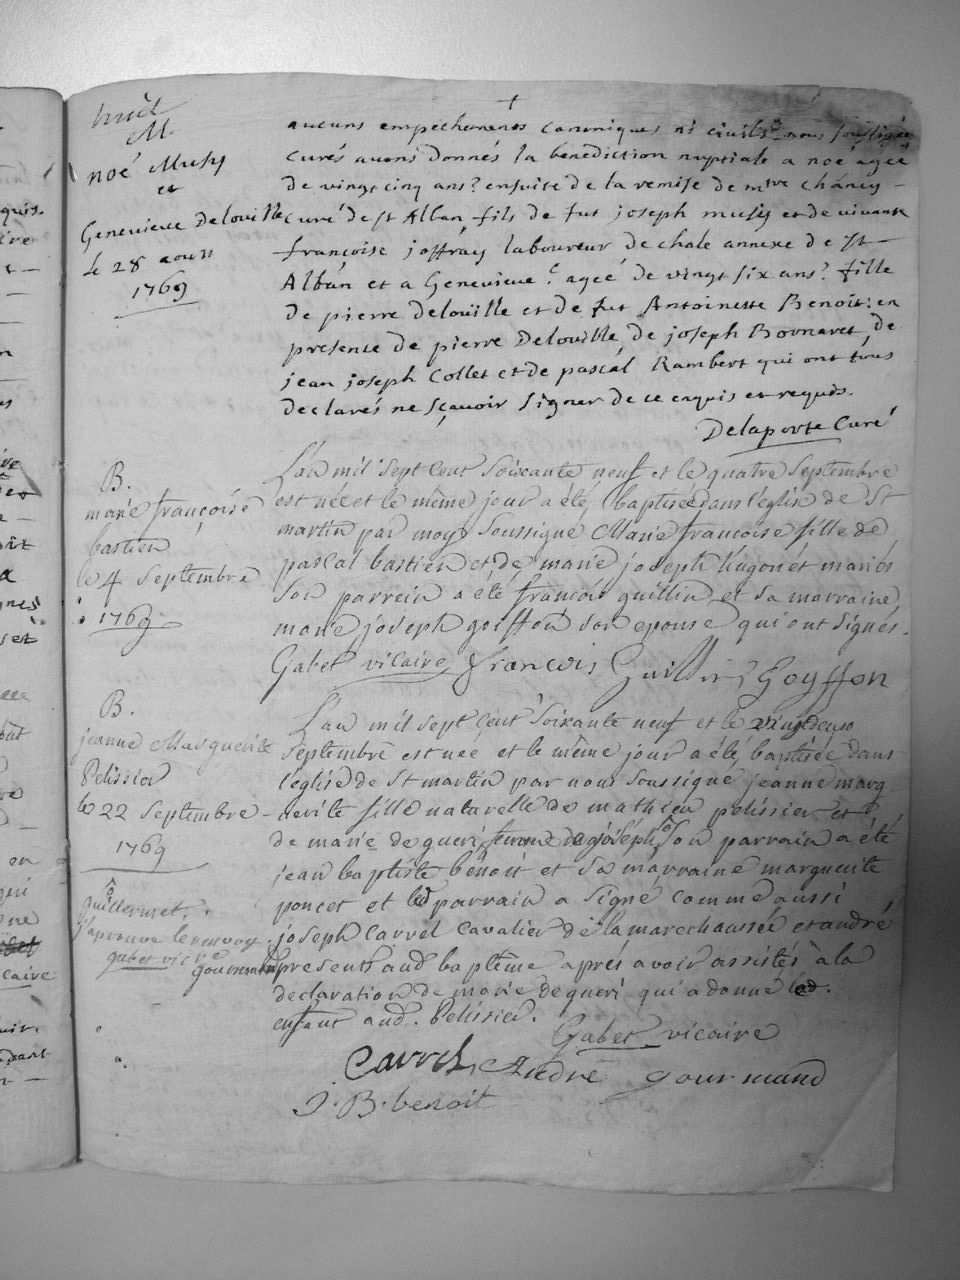 huit
M.
noé Musy
et
Genevieve Delouille
le 28 aoust
1769
aucuns empechemens canoniques ni civils nous soussigné
curés avons donnés la benediction nuptiale a noé agee
de vingt cinq ans? ensuite de la remise de mtre chancy
curé de st Alban fils de fut joseph musy et de vivante
françoise joffráy laboureur de chale annexe de St
Albán et a Genevieve agée de vingt six ans? fille
de pierre Delouille et de fut Antoinette Benoit: en
presence de pierre Delouille de joseph Bornaret, de
jean joseph Collet et de pascál Rambert qui ont tous
declarés ne sçavoir signer de ce enquis et requis.
Delaporte Curé
B.
marie françoise
bastien
le 4 Septembre
1769
L'an mil sept cent soixante neuf et le quatre septembre
est née et le même jour a été baptisée dans l'eglise de St
martin par moy soussigné Marie françoise fille de
pascal bastien et de marie joseph hugon et mariés
son parrein a été françois guillin et sa marraine
marie joseph goiffon son epouse qui ont signés.
Gabet vicaire françois Guillin Goyffon
B.
jeanne Marguerite
Pelissier
le 22 Septembre
1769
L'an mil sept cent soixante neuf et le vingt deux
septembre est née et le même jour a été baptisée dans
l'eglise de St martin par nous soussigné jeanne marg
uerite fille naturelle de mathieu pelissier et
de marie de queri, femme de joseph son parrain a été
jean baptiste bénoit et sa marraine marguerite
poncet et led parrain a signé comme aussi
joseph Carrel Cavalier de la marechaussée et andré
presents aud baptême aprés avoir assistés à la
declaration de marie dequeri qui a donné led.
enfant aud. Pelissier.
guillermet.
j'approuve le renvoy
gabet vicre
gourmand
Gabet vicaire
Carrel, André gourmand
J. B. benoit